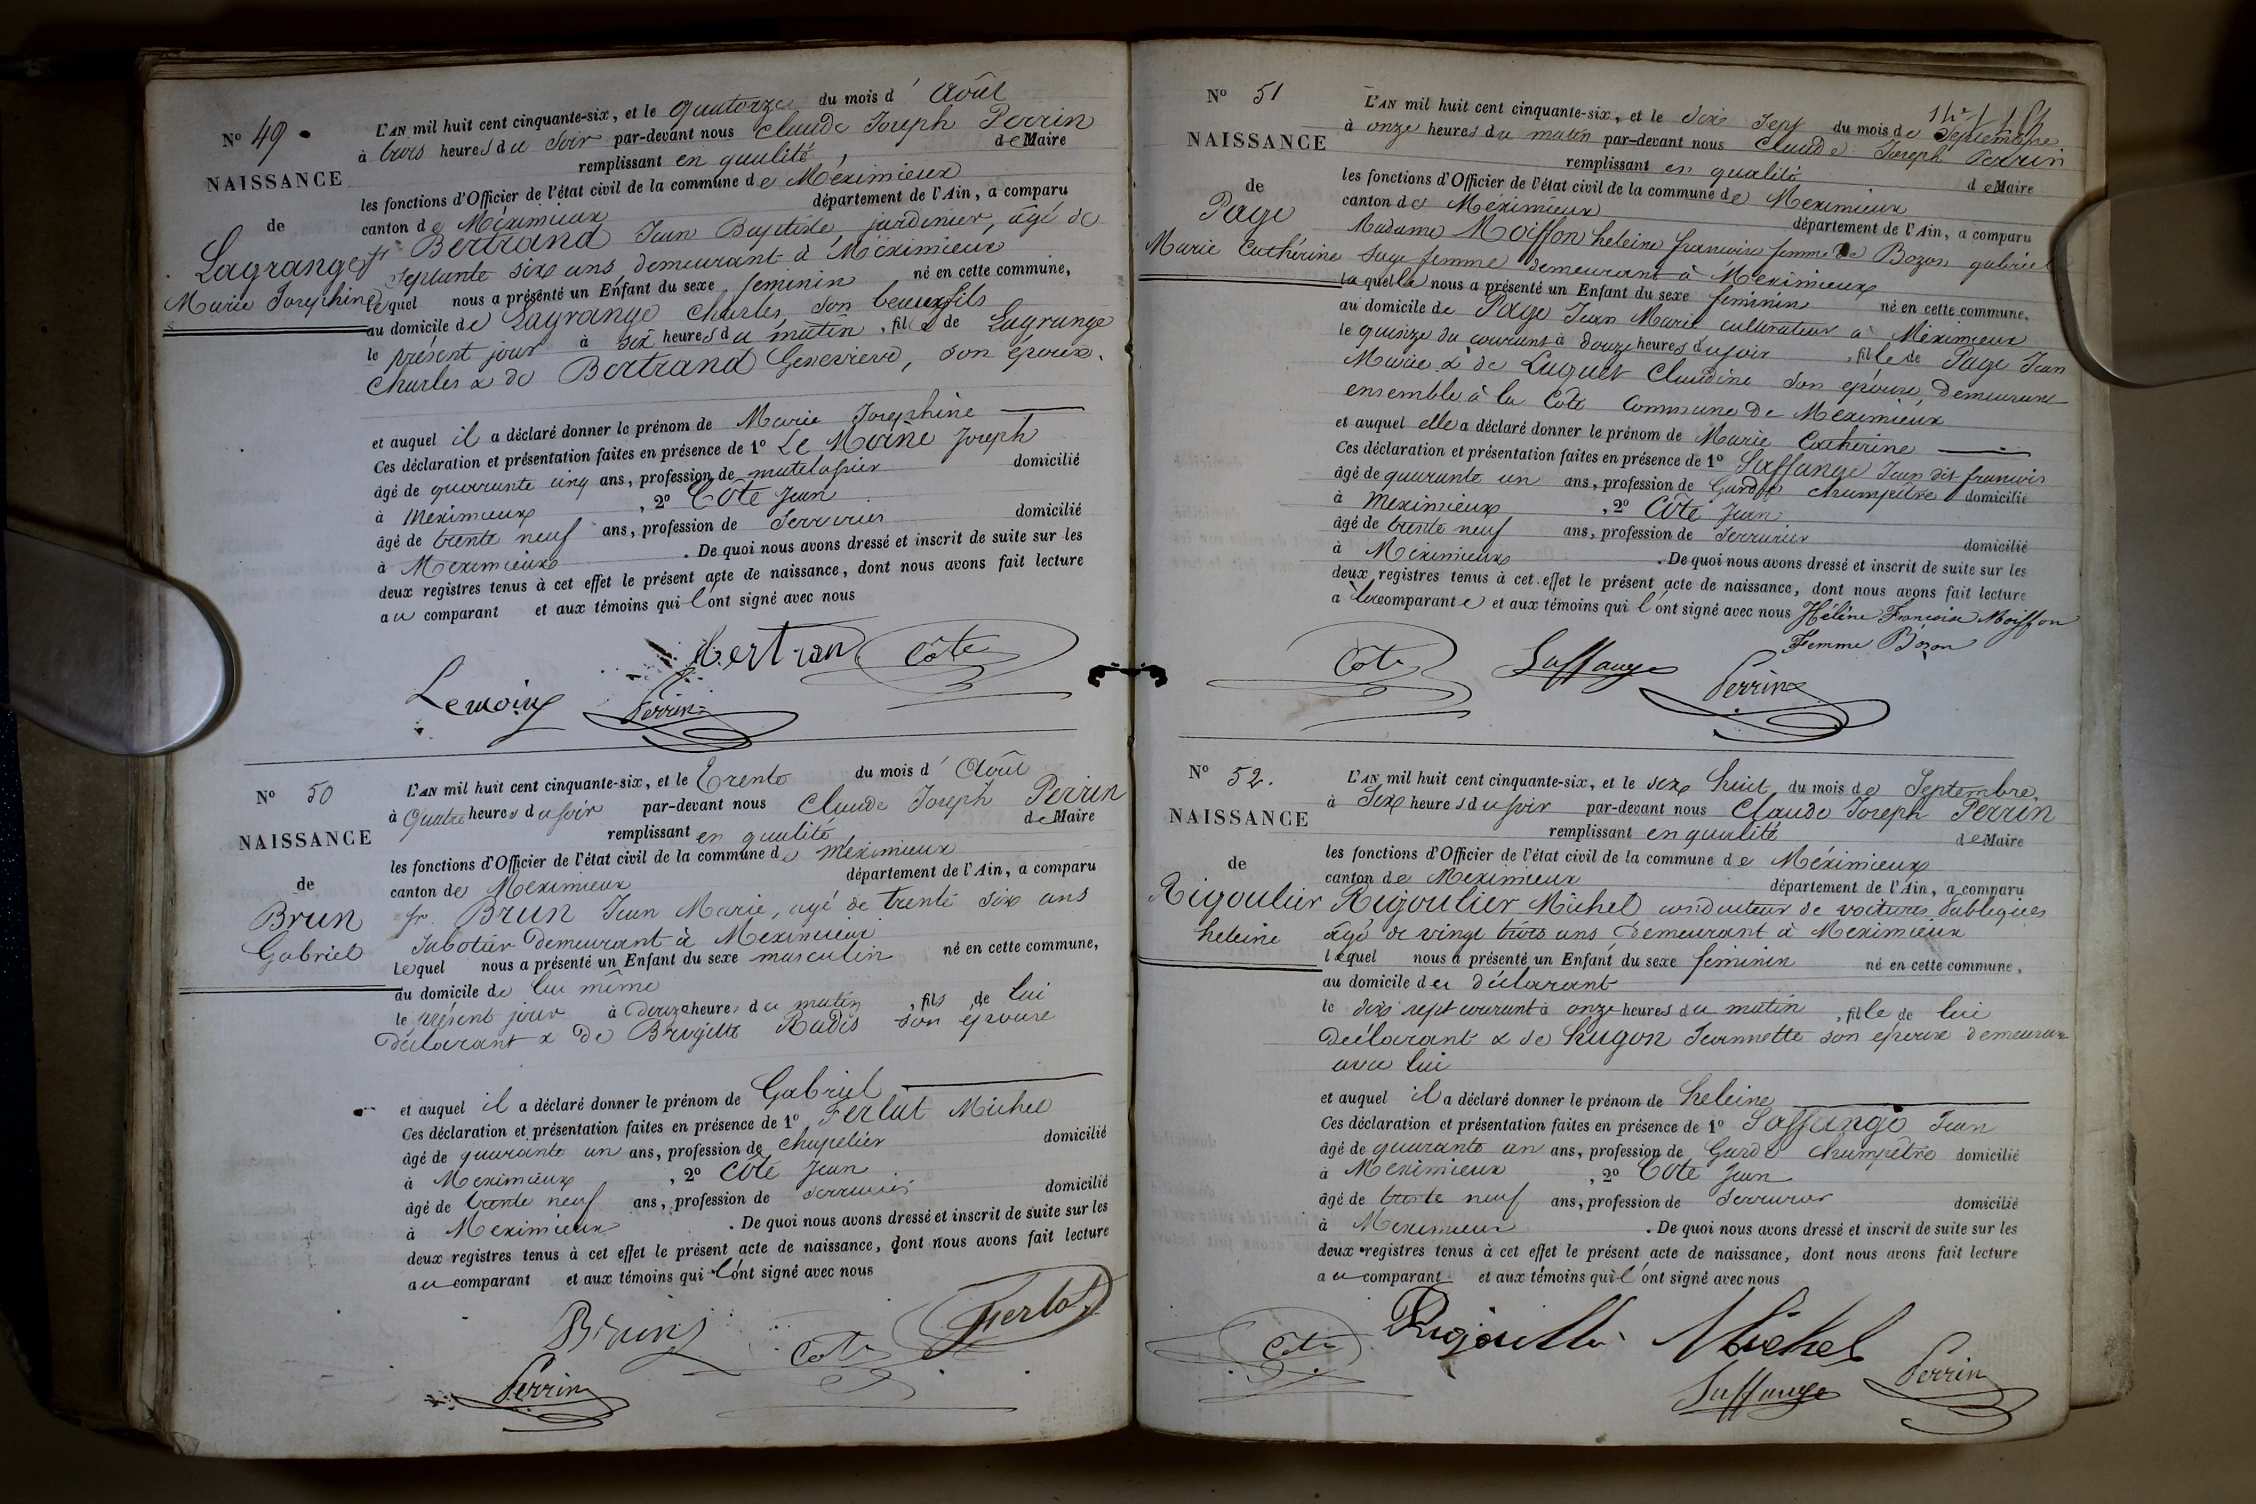 N° 49
NAISSANCE
de
Lagrange
Marie Josephine
L'AN mil huit cent cinquante-six, et le quatorze du mois d' Août
à trois heures du soir par-devant nous Claude Joseph Perrin
remplissant en qualité de Maire
les fonctions d'Officier de l'état civil de la commune de Méximieux
canton de Méximieux département de l'Ain, a comparu
sr Bertrand Jean Baptiste, jardinier, âgé de
septante six ans, demeurant à Méximieux
Lequel nous a présenté un Enfant du sexe feminin né en cette commune,
au domicile de Lagrange Charles, son beaux fils
le présent jour à six heures du matin, fille de Lagrange
Charles & de Bertrand Genevieve, son épouse.
et auquel il a déclaré donner le prénom de Marie Josephine
Ces déclaration et présentation faites en présence de 1° Le Moine Joseph
âgé de quarante cinq ans, profession de matelassier domicilié
à Meximieux, 2° Côte Jean
âgé de trente neuf ans, profession de Serrurier domicilié
à Meximieux. De quoi nous avons dressé et inscrit de suite sur les
deux registres tenus à cet effet le présent acte de naissance, dont nous avons fait lecture
au comparant et aux témoins qui l'ont signé avec nous
bertran Côte
Lemoine Perrin
N° 50
NAISSANCE
de
Brun
Gabriel
L'AN mil huit cent cinquante-six, et le Trente du mois d' Août
à Quatre heures du soir par-devant nous Claude Joseph Perrin
remplissant en qualité de Maire
les fonctions d'Officier de l'état civil de la commune de Meximieux
canton de Meximieux département de l'Ain, a comparu
sr. Brun Jean Marie, agé de trente six ans
Sabotier demeurant à Meximieux
Lequel nous a présenté un Enfant du sexe masculin né en cette commune,
au domicile de lui même
le présent jour à douze heures du matin, fils de lui
déclarant & de Brigitte Radis son épouse
et auquel il a déclaré donner le prénom de Gabriel
Ces déclaration et présentation faites en présence de 1° Ferlat Michel
âgé de quarante un ans, profession de chapelier domicilié
à Meximieux, 2° Côte Jean
âgé de trente neuf ans, profession de serrurier domicilié
à Meximieux. De quoi nous avons dressé et inscrit de suite sur les
deux registres tenus à cet effet le présent acte de naissance, dont nous avons fait lecture
au comparant et aux témoins qui l'ont signé avec nous
Brun Cote Ferlat
Perrin
N° 51
NAISSANCE
de
Page
Marie Cathérine
L'AN mil huit cent cinquante-six, et le dix sept du mois de Septembre
à onze heures du matin par-devant nous Claude Joseph Perrin
remplissant en qualité de Maire
les fonctions d'Officier de l'état civil de la commune de Meximieux
canton de Méximieux département de l'Ain, a comparu
Madame Moiffon heleine francoise femme de Bozon gabriel
sage femme demeurant à Meximieux
laquelle nous a présenté un Enfant du sexe feminin né en cette commune,
au domicile de Page Jean Marie cultivateur à Méximieux
le quinze du courant à douze heures du soir, fille de Page Jean
Marie & de Luquet Claudine son epouse, demeurant
ensemble à la Cote Commune de Méximieux
et auquel elle a déclaré donner le prénom de Marie Catherine
Ces déclaration et présentation faites en présence de 1° Saffange Jean dit francois
âgé de quarante un ans, profession de Garde champêtre domicilié
à Meximieux, 2° Côte Jean
âgé de trente neuf ans, profession de serrurier domicilié
à Méximieux. De quoi nous avons dressé et inscrit de suite sur les
deux registres tenus à cet effet le présent acte de naissance, dont nous avons fait lecture
a la comparante et aux témoins qui l'ont signé avec nous Hélène Francoise Moiffon
Femme Bozon
Cote Saffange Perrin
N° 52.
NAISSANCE
de
Rigoulier
heleine
L'AN mil huit cent cinquante-six, et le dix huit du mois de Septembre
à Six heures du soir par-devant nous Claude Joseph Perrin
remplissant en qualité de Maire
les fonctions d'Officier de l'état civil de la commune de Méximieux
canton de Meximieux département de l'Ain, a comparu
Rigoulier Michel conducteur de voitures publiques
âgé de vingt trois ans demeurant à Meximieux
lequel nous a présenté un Enfant du sexe feminin né en cette commune,
au domicile du déclarant
le dix sept courant à onze heures du matin, fille de lui
Déclarant & de hugon Jeannette son épouse demeurant
avec lui
et auquel il a déclaré donner le prénom de heleine
Ces déclaration et présentation faites en présence de 1° Saffange Jean
âgé de quarante un ans, profession de Garde champêtre domicilié
à Meximieux, 2° Cote Jean
âgé de trente neuf ans, profession de Serrurier domicilié
à Meximieux. De quoi nous avons dressé et inscrit de suite sur les
deux registres tenus à cet effet le présent acte de naissance, dont nous avons fait lecture
au comparant et aux témoins qui l'ont signé avec nous
Cote Michel
Saffange Perrin